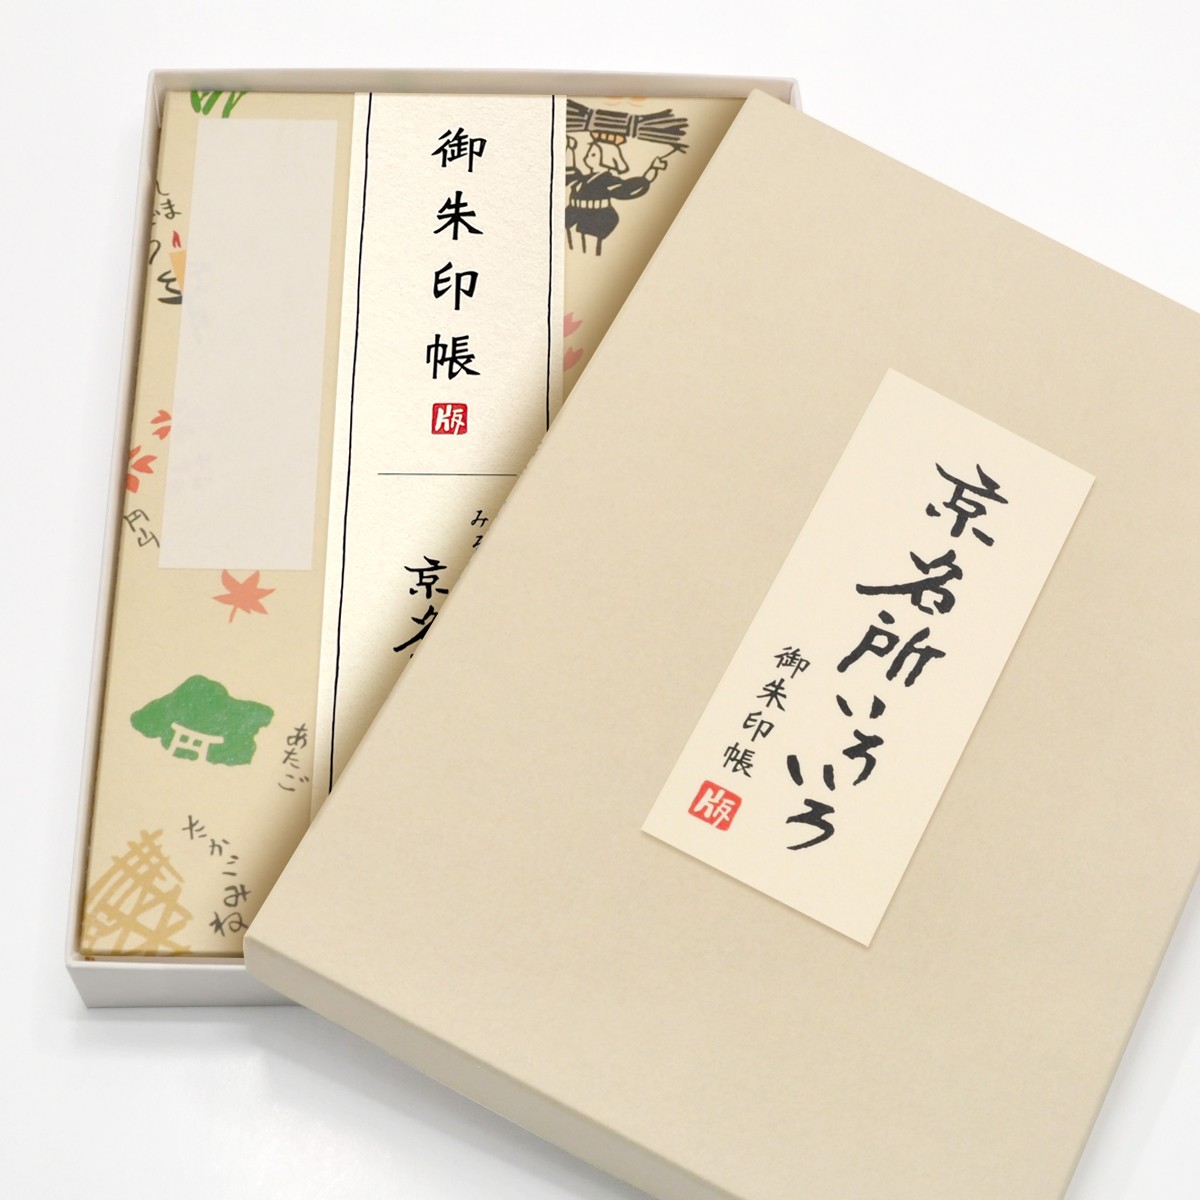 御朱印帳
版
み
京名
円山
あたご
たかこみね
京名所いろいろ
御朱印帳
版